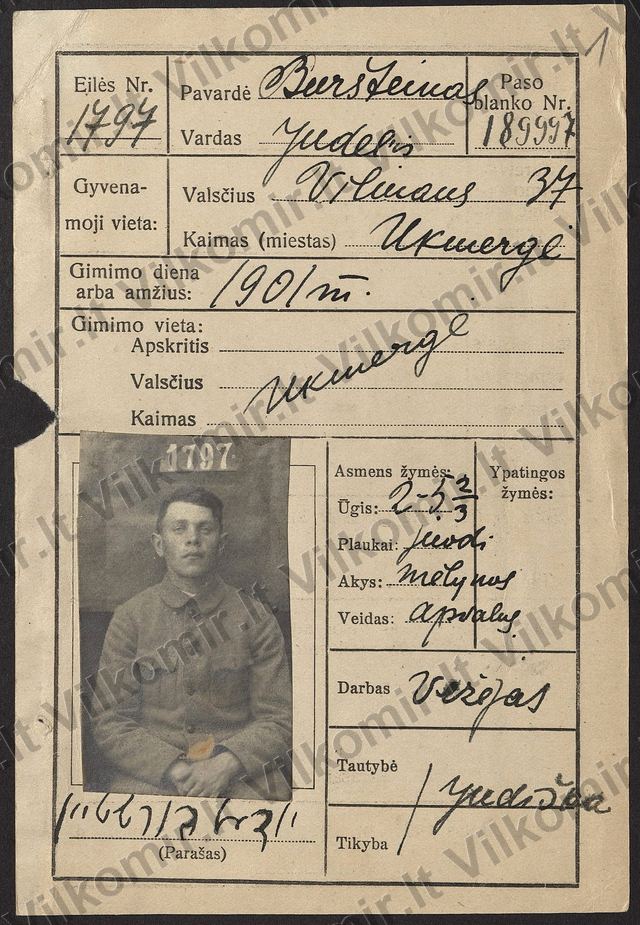 1
Eilės Nr. 1797
Pavardė Buršteinas
Vardas Judelis
Paso blanko Nr. 189997
Gyvenamoji vieta:
Valsčius Vilniaus 37
Kaimas (miestas) Ukmergė
Gimimo diena
arba amžius: 1901 III.
Gimimo vieta:
Apskritis
Valsčius Ukmergė
Kaimas
1797
Asmens žymės:
Ūgis: 2-5 2/3
Plaukai: juodi
Akys: mėlynos
Veidas: apvalus
Ypatingos
žymės:
Darbas Vežėjas
Tautybė
Tikyba
(Parašas)
Vilkomir.lt